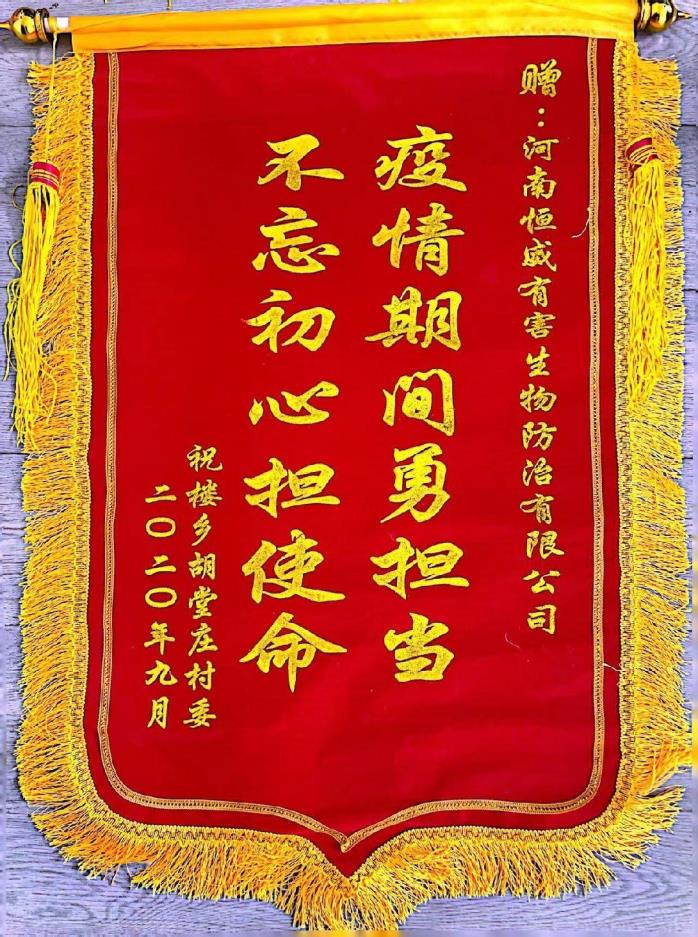 赠：河南恒威有害生物防治有限公司
疫情期间勇担当
不忘初心担使命
祝楼乡胡堂庄村委
二〇二〇年九月